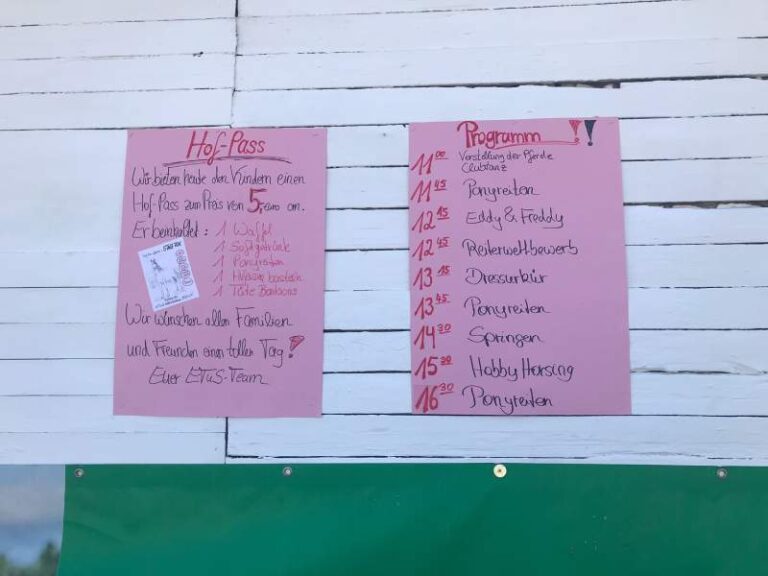 Hof-Pass
Wir bieten heute den Kindern einen
Hof-Pass zum Preis von 5,- Euro an.
Er beinhaltet: 1 Waffel
1 Softgetränk
1 Ponyreiten
1 basteln
1 Tüte Bonbons
Wir wünschen allen Familien
und Freunden einen tollen Tag!
Euer ETuS-Team
Programm !!
11 00 Vorstellung der Pferde
Clubtanz
11 45 Ponyreiten
12 15 Eddy & Freddy
12 45 Reiterwettbewerb
13 15 Dressurkür
13 45 Ponyreiten
14 30 Springen
15 30 Hobby Horsing
16 30 Ponyreiten